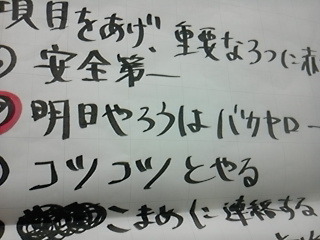 項目をあげ、重要な3つに赤
安全第一
明日やろうはバカヤロー
コツコツとやる
こまめに連絡する